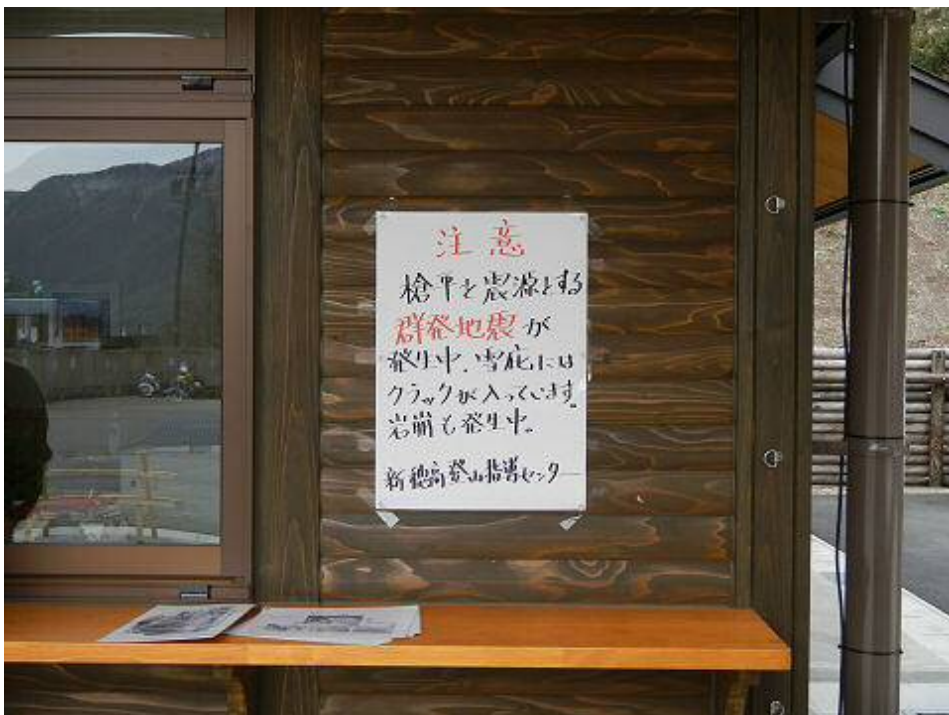 注意
槍平を震源とする
群発地震が
発生中、雪庇には
クラックが入っています。
岩崩も発生中。
新穂高登山指導センター